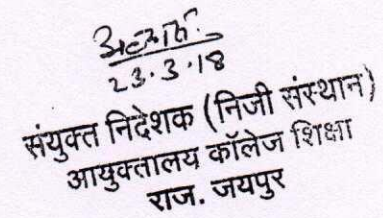 23.3.18
संयुक्त निदेशक (निजी संस्थान)
आयुक्तालय कॉलेज शिक्षा
राज. जयपुर